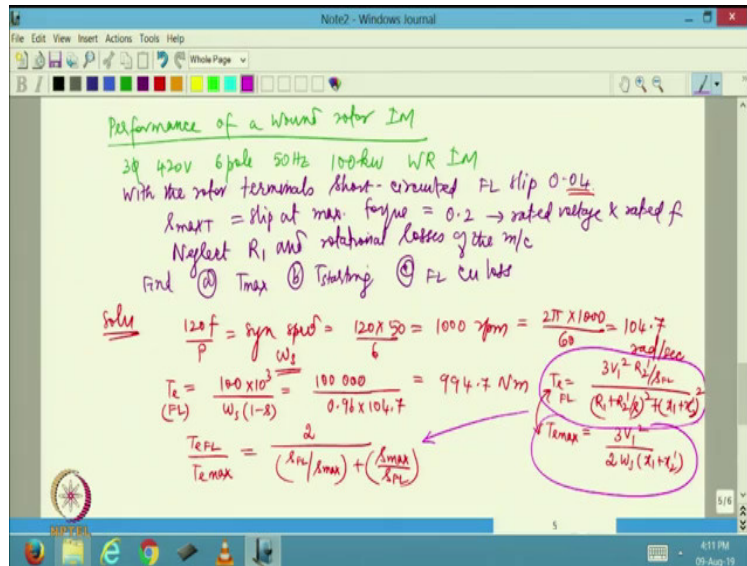 Note2 - Windows Journal
File Edit View Insert Actions Tools Help
Whole Page
B I
Performance of a Wound rotor IM
3φ 420V 6 pole 50 Hz 100kw WR IM
With the rotor terminals Short-circuited FL slip 0.04
SmaxT = slip at max. torque = 0.2 → rated voltage x rated f
Neglect R1 and rotational losses of the m/c
Find (a) Tmax (b) Tstarting (c) FL cu loss
Solu 120f/P = syn speed = 120x50/6 = 1000 rpm = 2π x 1000/60 = 104.7 rad/sec
ωs
Te (FL) = 100 x 10^3/ωs(1-s) = 100 000/0.96 x 104.7 = 994.7 Nm
Te FL = 3V1^2 R2'/sFL/(R1+R2'/s)^2+(x1+x2')^2
TeFL/Temax = 2/(sFL/smax)+(smax/sFL)
Temax = 3V1^2/2ωs(x1+x2')
NPTEL
5
5/6
4:11 PM
09-Aug-19